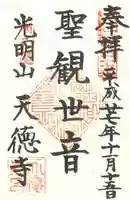 奉拝 平成廿七年十月十五日
聖観世音
光明山 天徳寺